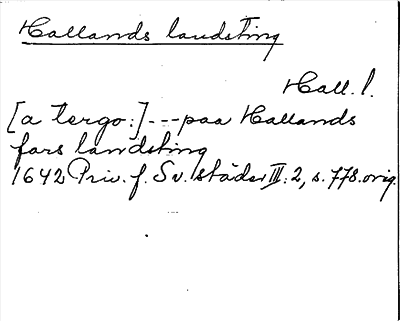 Hallands landsting
Hall. l.
[a tergo:] --- paa Hallands
fars landsting
1642 Priv. f. Sv. städer III: 2, s. 778. orig.